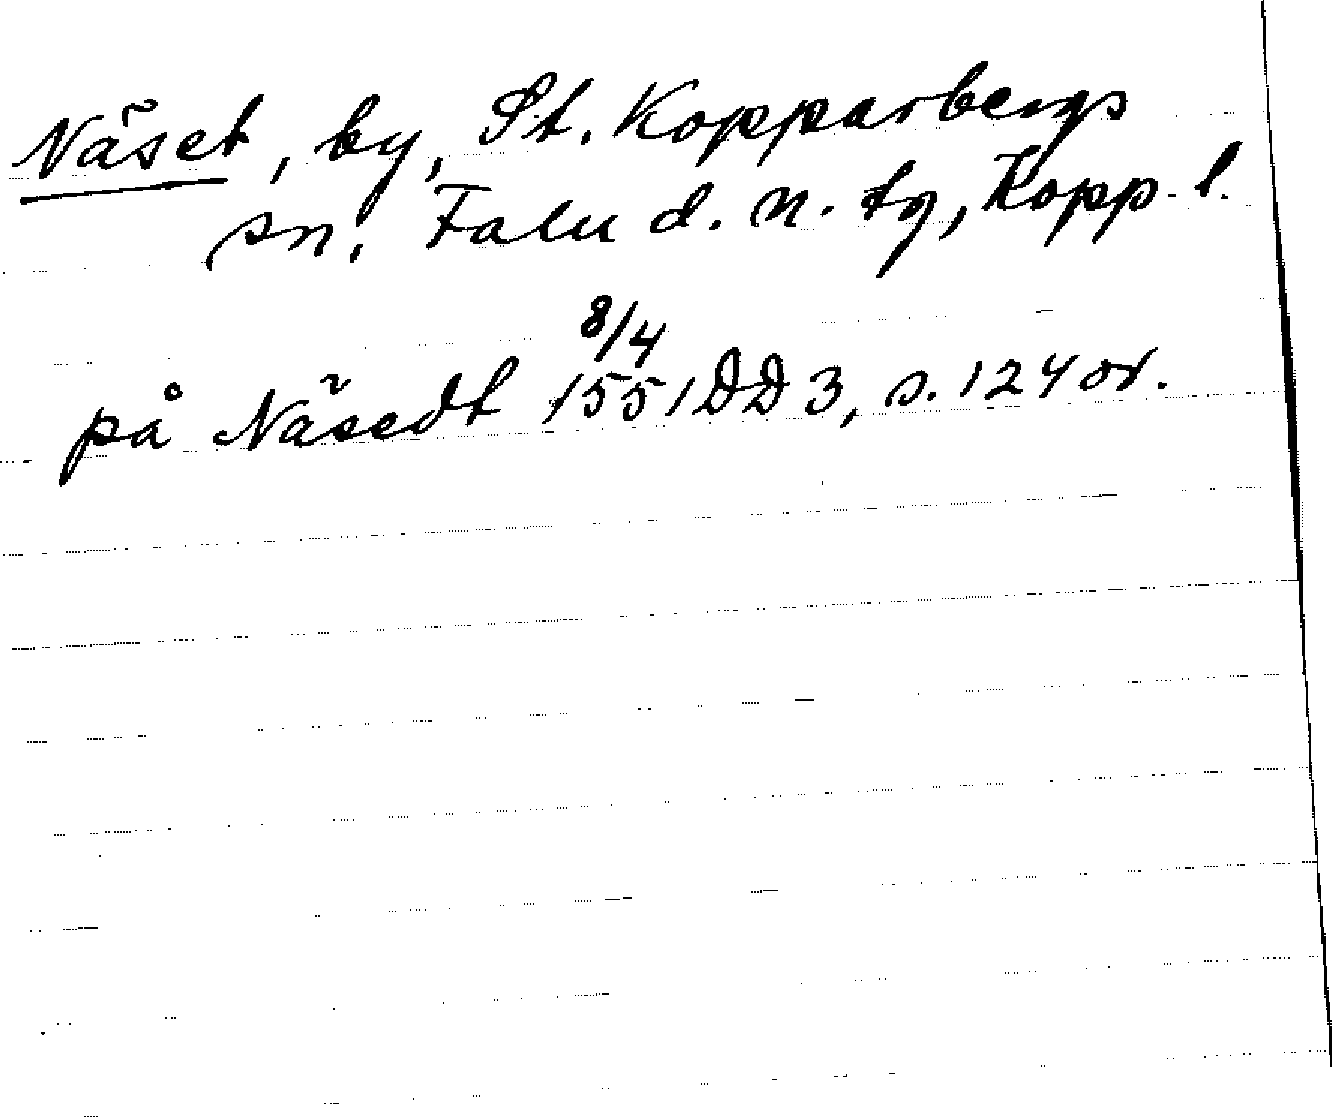 Näset, by, St. Kopparbergs
sn. Falu d. n. tg, Kopp. l.
på Näsedt 8/4 1551 DD 3, s. 124 or.